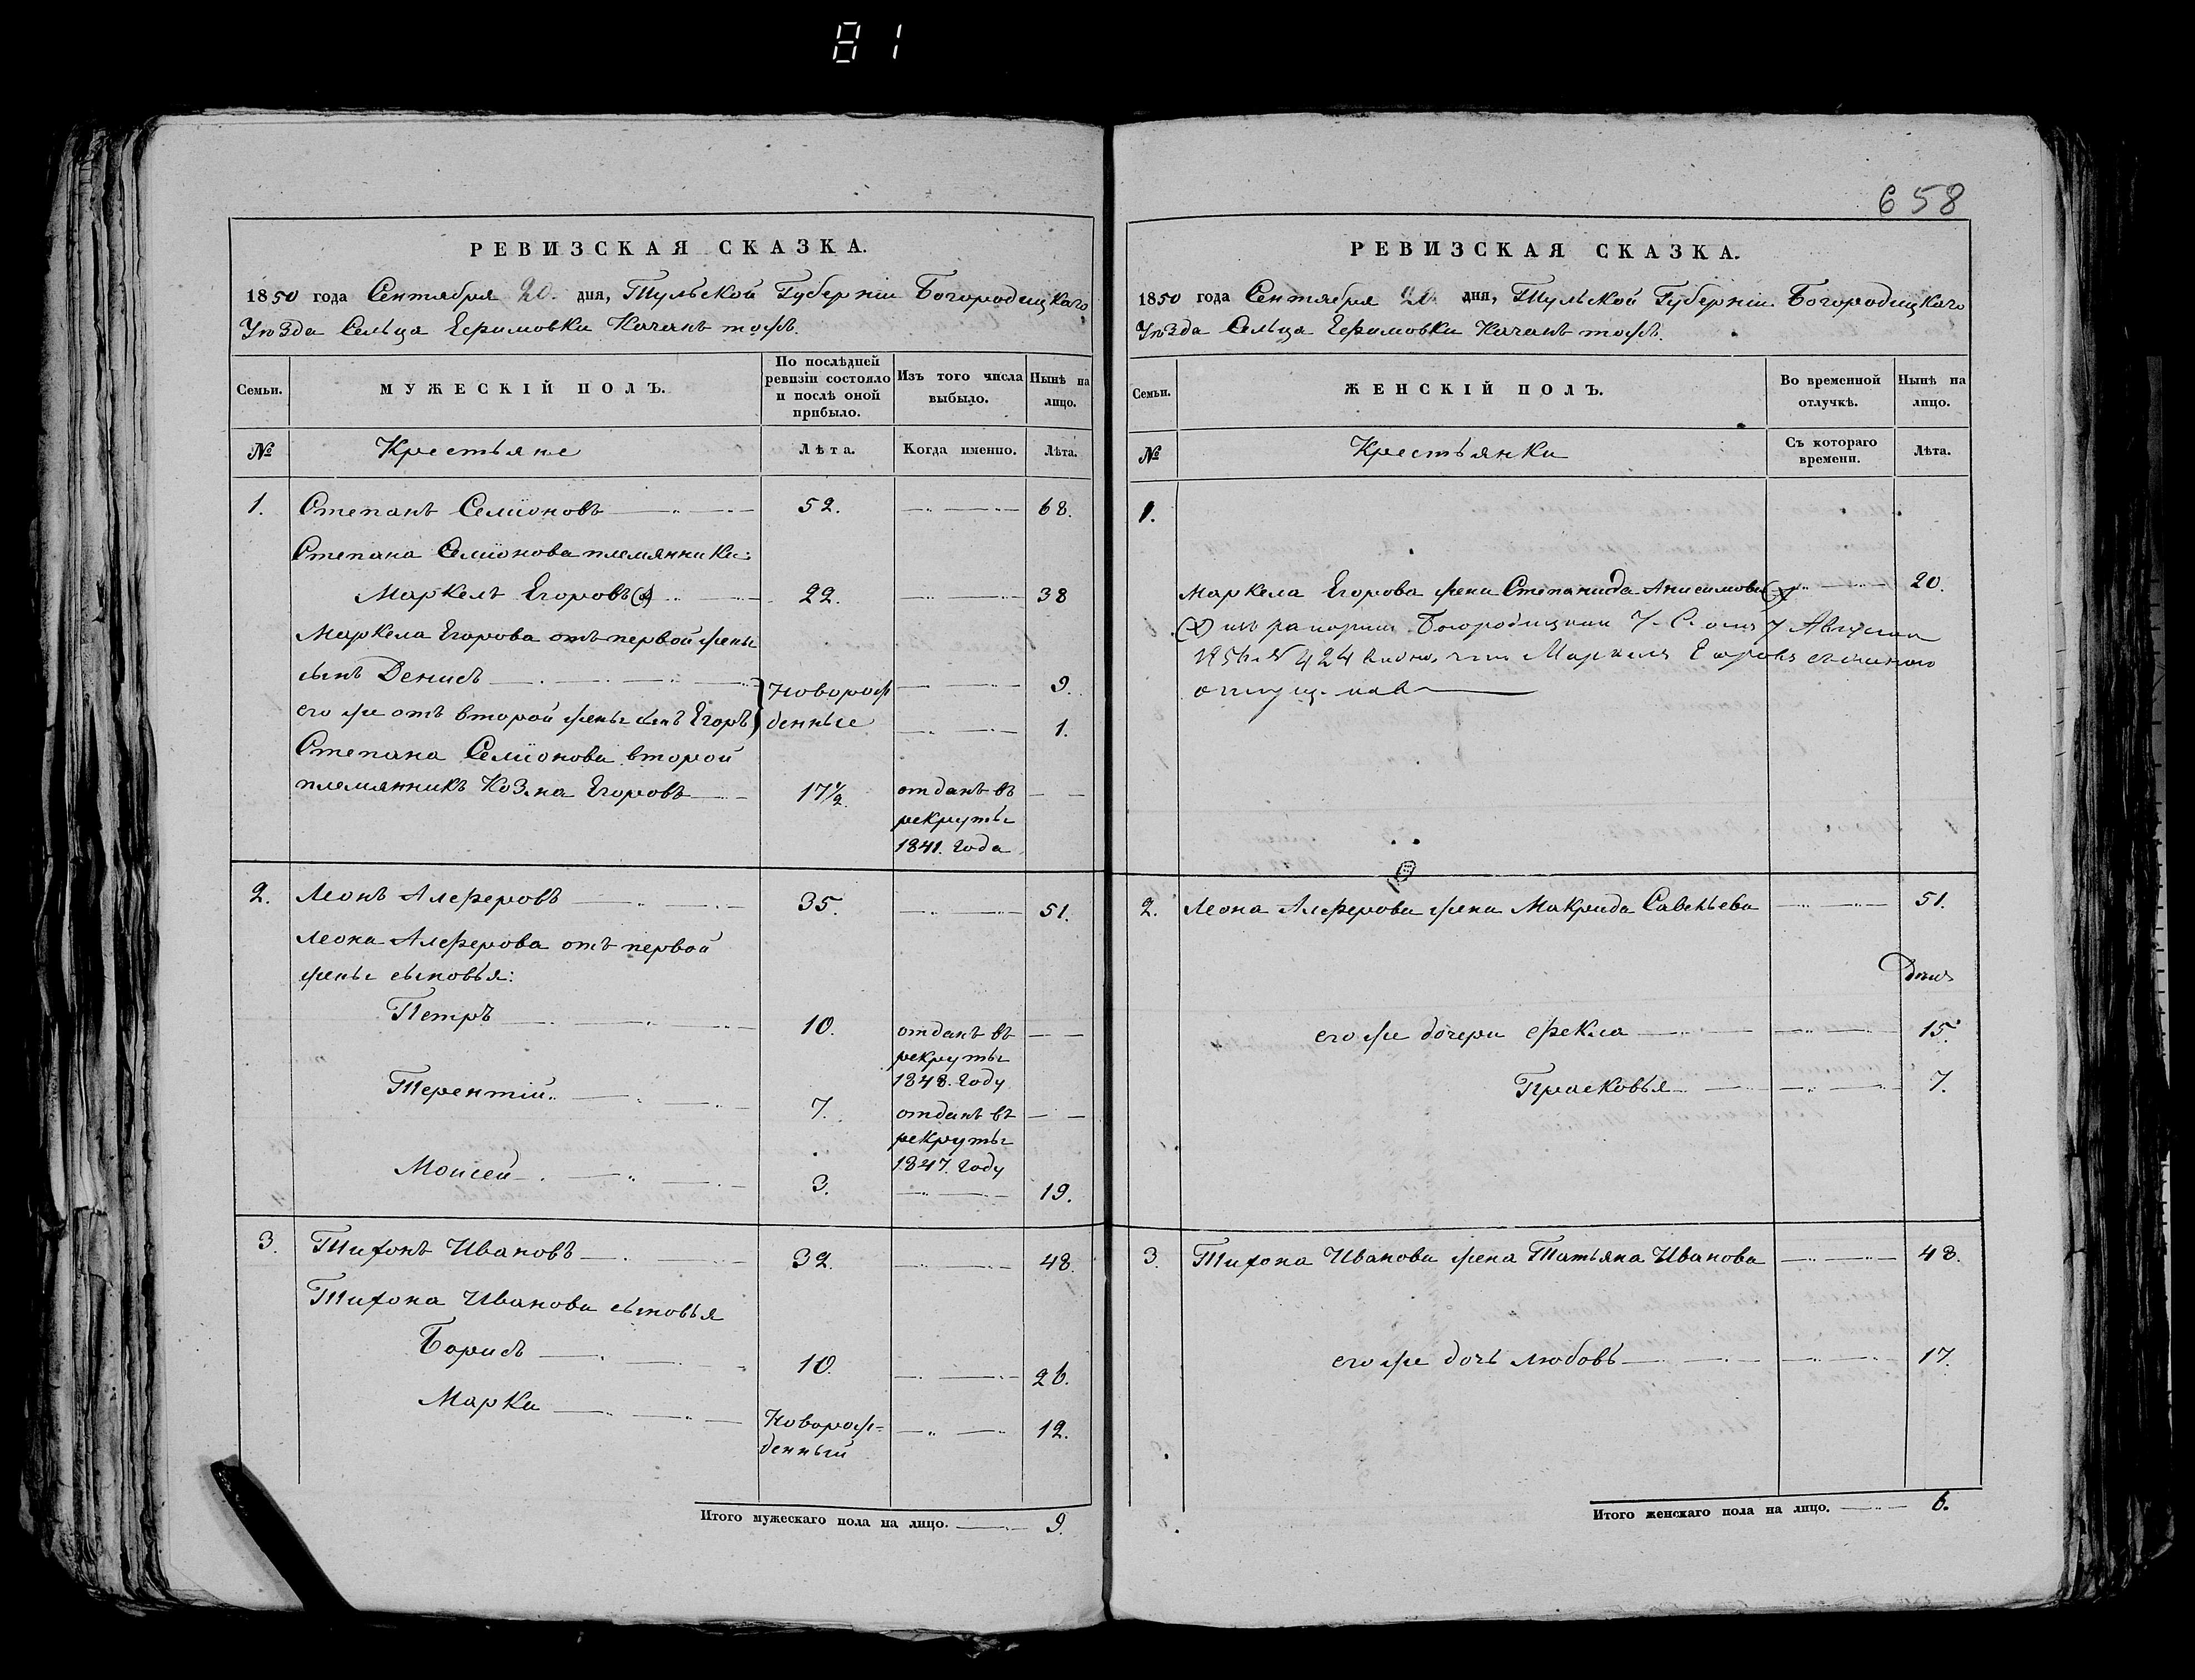 81
658
РЕВИЗСКАЯ СКАЗКА.
1850 года Сентября 20. дня, Тульской Губерніи Богородицкаго
Уѣзда Сельца Ефимовки Качанъ тожъ.
Семьи.
МУЖЕСКІЙ ПОЛЪ.
По послѣдней ревизіи состояло и послѣ оной прибыло.
Изъ того числа выбыло.
Нынѣ на лицо.
№
Крестьяне
Лѣта.
Когда именно.
Лѣта.
1. Степанъ Семіоновъ 52. 68.
Степана Семіонова племянники:
Маркелъ Егоровъ (х) 22. 38
Маркела Егорова отъ первой жены
сынъ Денисъ 9.
его же отъ второй жены сынъ Егоръ 1.
Новорожденные
Степана Семіонова второй
племянникъ Козма Егоровъ 17½ отданъ въ
рекруты
1841. года
2. Леонъ Алферовъ 35. 51.
Леона Алферова отъ первой
жены сыновья:
Петръ 10. отданъ въ
рекруты
1848. году
Терентій 7. отданъ въ
рекруты
1847. году
Моисей 3. 19.
3. Тихонъ Ивановъ 32. 48.
Тихона Иванова сыновья
Борисъ 10. 26.
Марки Новорож=
денный 12.
Итого мужескаго пола на лицо. 9.
РЕВИЗСКАЯ СКАЗКА.
1850 года Сентября 20. дня, Тульской Губерніи Богородицкаго
Уѣзда Сельца Ефимовки Качанъ тожъ.
Семьи.
ЖЕНСКІЙ ПОЛЪ.
Во временной отлучкѣ.
Нынѣ на лицо.
№
Крестьянки
Съ котораго времени.
Лѣта.
1.
Маркела Егорова жена Степанида Анисимова (х) 20.
(х) изъ рапорта Богородицкаго У. С. отъ 7 Августа
№ 424 видно, что Маркелъ Егоровъ
2. Леона Алферова жена Макрида Савельева 51.
его же дочери Фекла 15.
Прасковья 7.
3. Тихона Иванова жена Татьяна Иванова 48.
его же дочь Любовь 17.
Итого женскаго пола на лицо. 6.